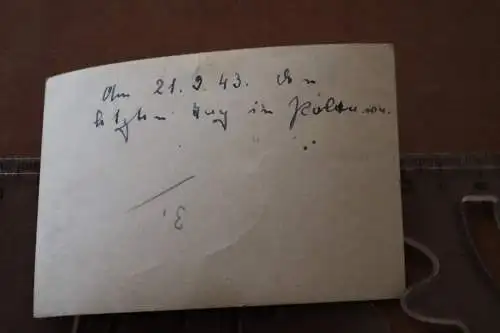 Am 21.9.43. den
letzten Tag in
3.